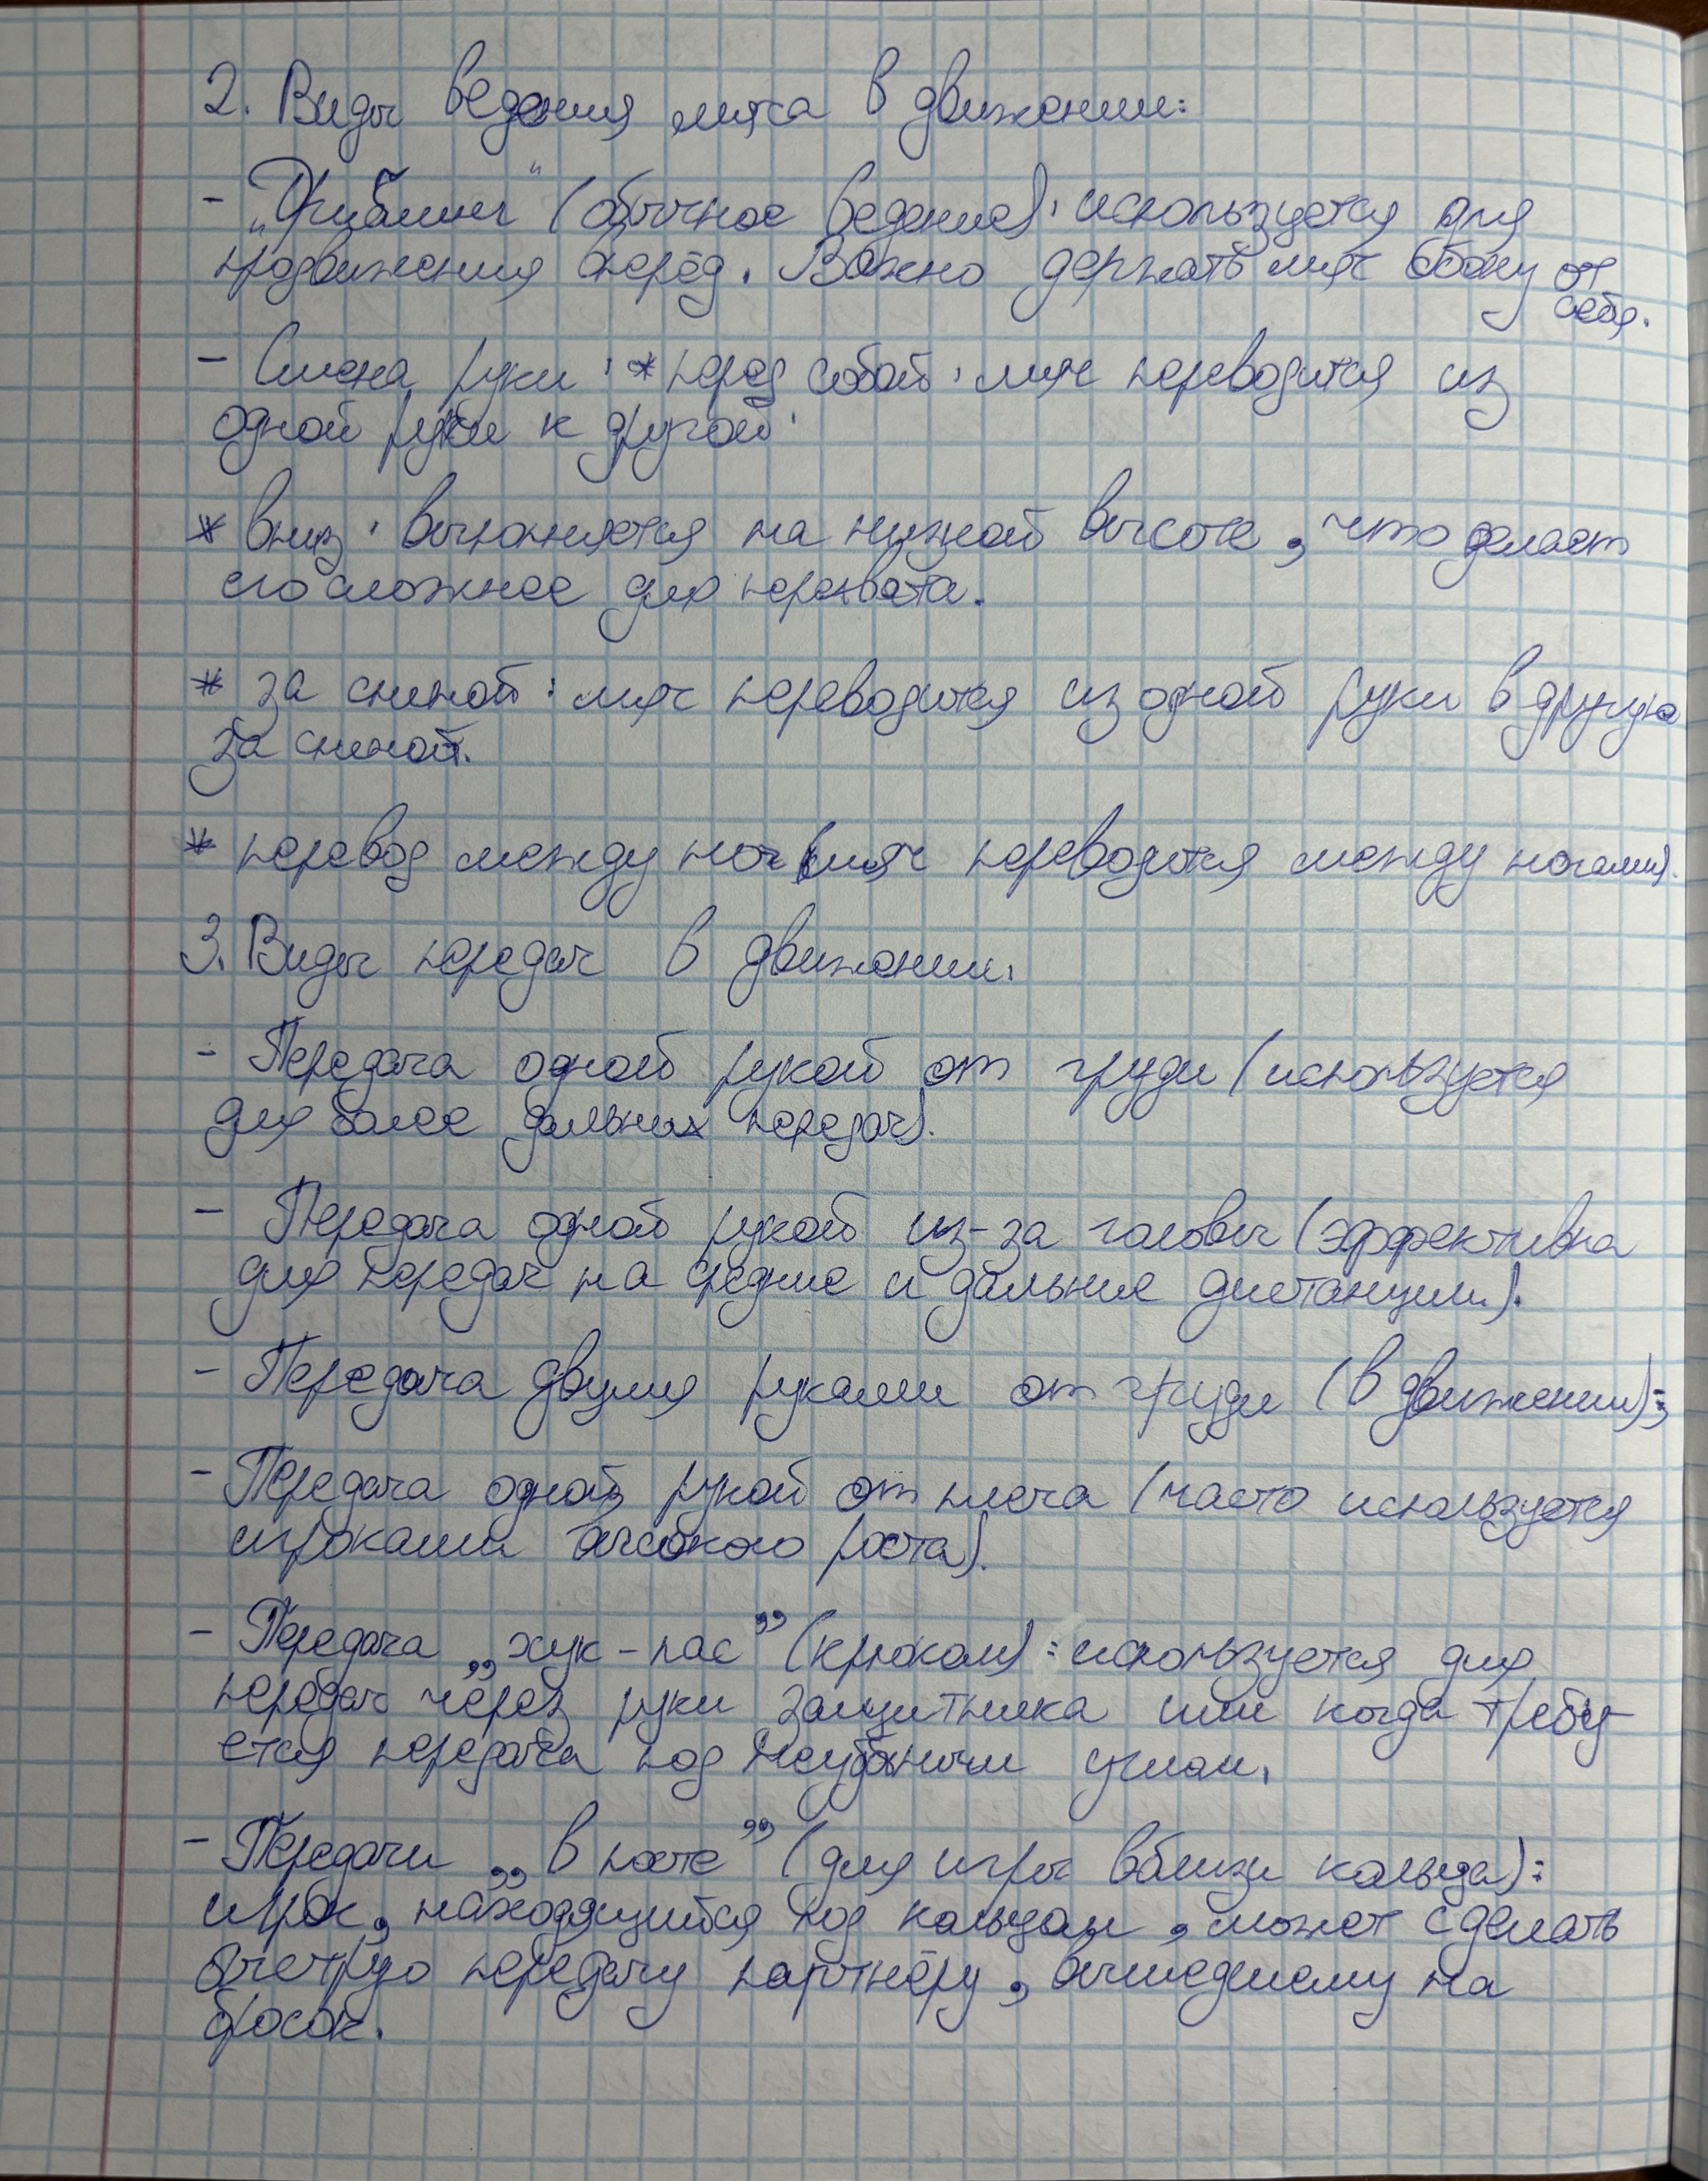 2. Виды ведения мяча в движении:
- „Дриблинг" (обычное ведение): используется для
продвижения вперёд. Важно держать мяч сбоку от
себя.
- Смена руки: * перед собой: мяч переводится из
одной руки к другой.
* вниз: выполняется на низкой высоте, что делает
его сложнее для перехвата.
* за спиной: мяч переводится из одной руки в другую
за спиной.
* перевод между ног (мяч переводится между ногами).
3. Виды передач в движении.
- Передача одной рукой от груди (используется
для более дальних передач).
- Передача одной рукой из-за головы (эффективна
для передач на средние и дальние дистанции).
- Передача двумя руками от груди (в движении);
- Передача одной рукой от плеча (часто используется
игроками высокого роста).
- Передача „хук-пас” (крюком): используется для
передач через руки защитника или когда требу-
ется передача под неудобным углом.
- Передачи „в посте” (для игры вблизи кольца):
игрок, находящийся под кольцом, может сделать
быструю передачу партнёру, вышедшему на
бросок.